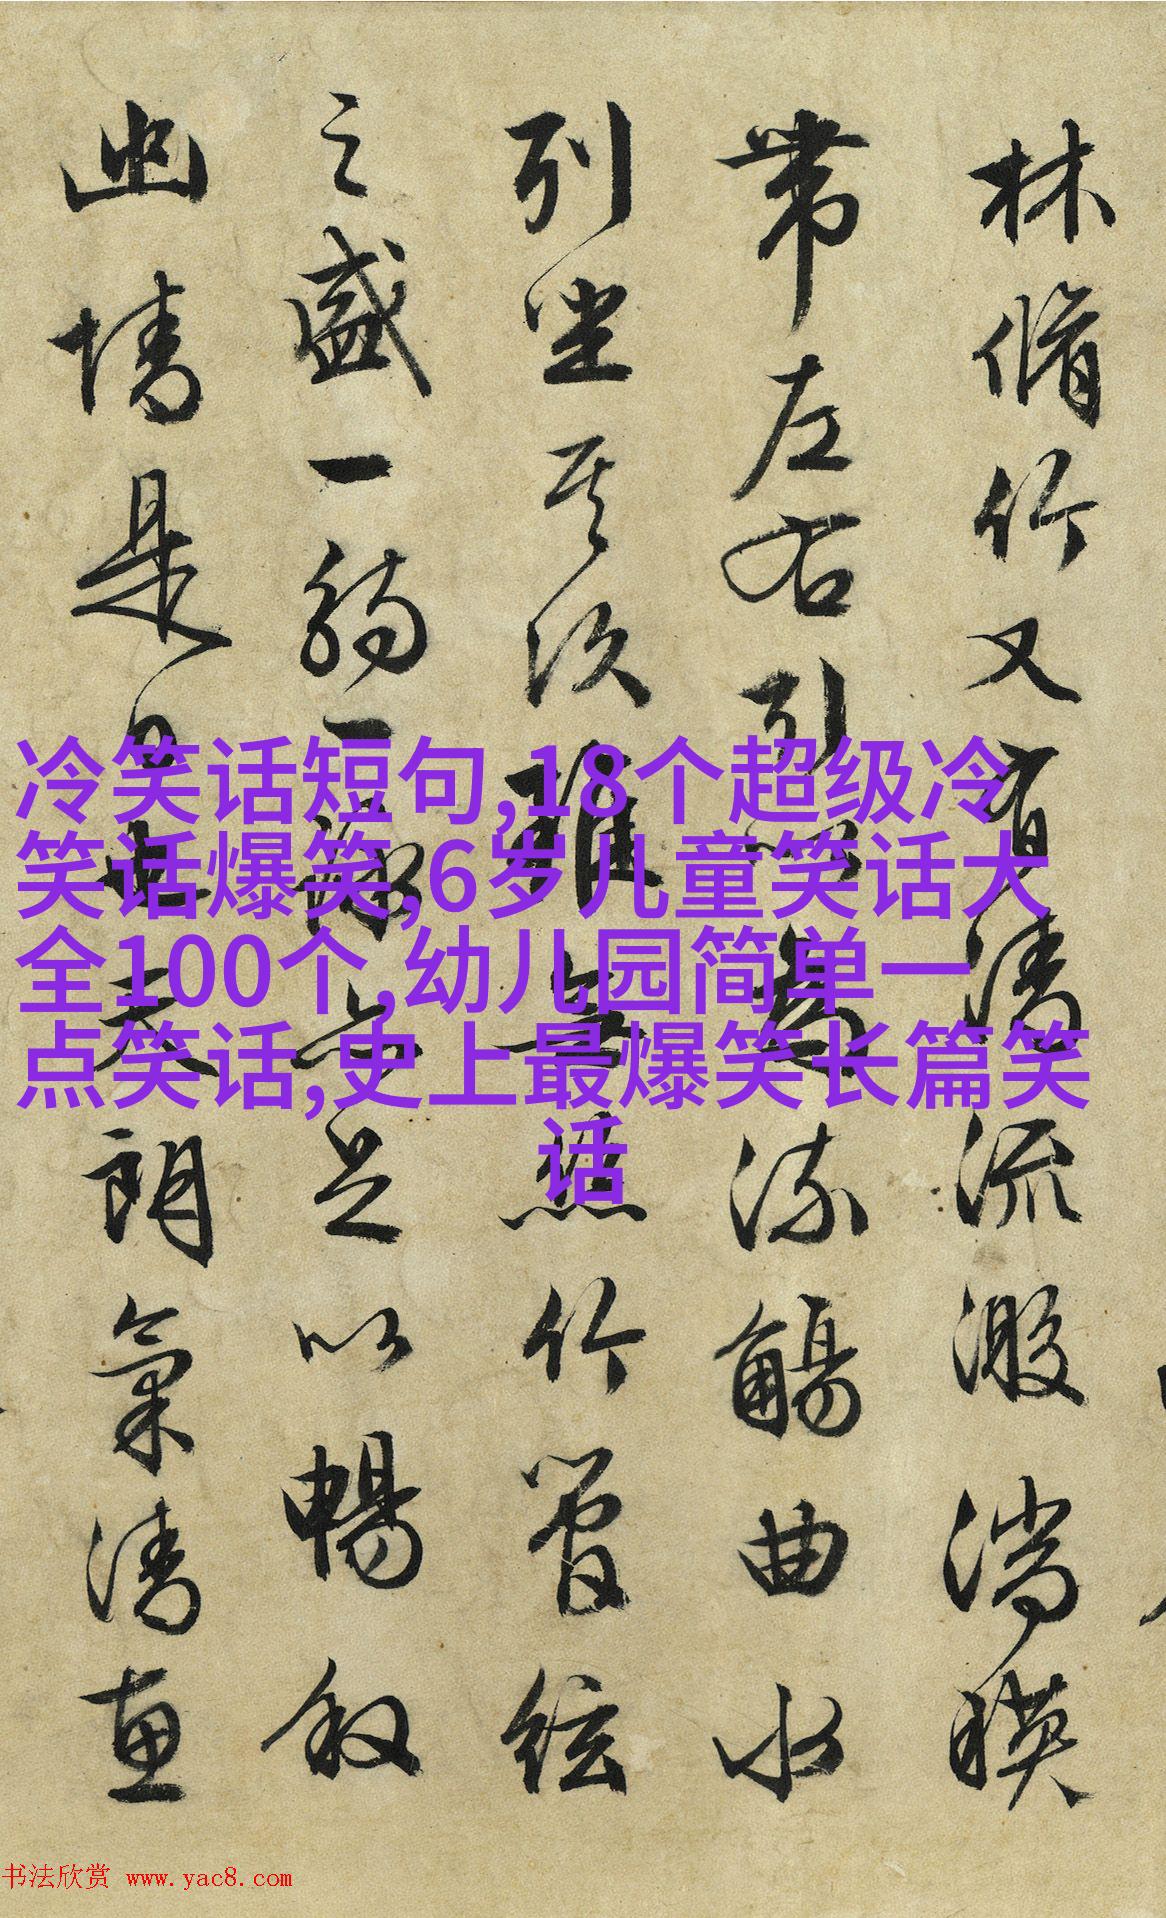 林脩竹又有清流激湍暎
帶左右引以為流觴曲水
列坐其次雖無絲竹管絃
之盛一觴一詠亦足以暢叙
幽情是日也天朗氣清惠
冷笑话短句,18个超级冷
笑话爆笑,6岁儿童笑话大
全100个,幼儿园简单一
点笑话,史上最爆笑长篇笑
话
书法欣赏 www.yac8.com